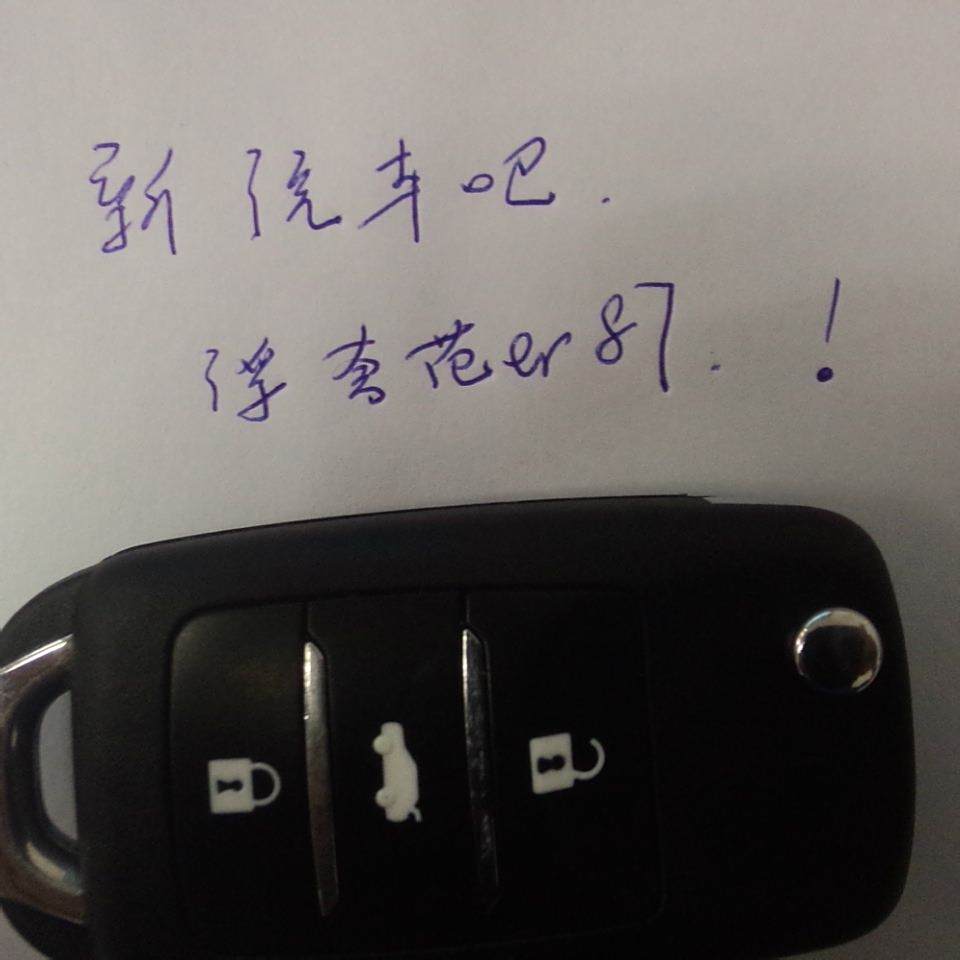 新汽车吧.
浮夸范er87.!